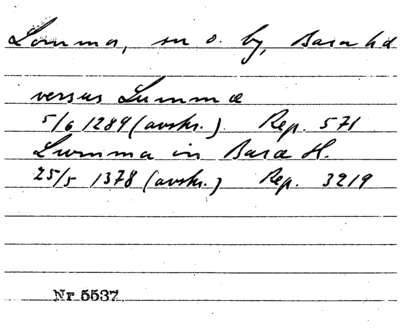 Lomma, sn o. by, Bara hd
versus Lumma
5/6 1289 (avskr.) Rep. 571
Lumma in Bara H.
25/5 1378 (avskr.) Rep. 3219
Nr 5537